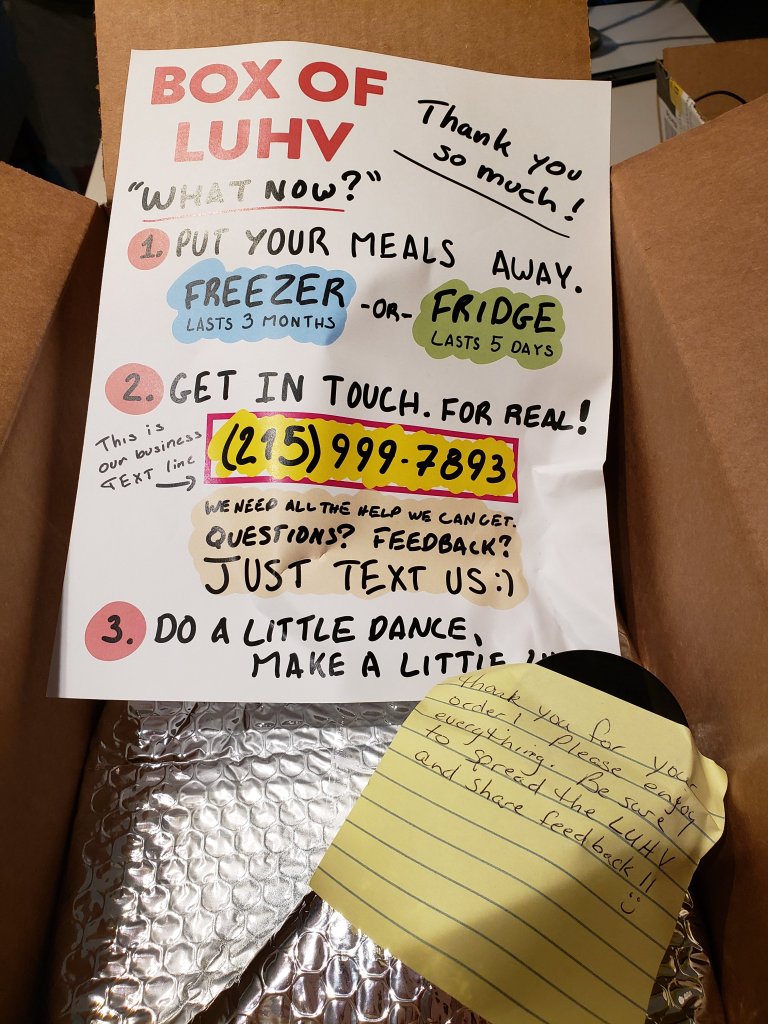 BOX OF
LUHV
Thank you
so much!
"WHAT NOW?"
1. PUT YOUR MEALS AWAY.
FREEZER
LASTS 3 MONTHS
-OR-
FRIDGE
LASTS 5 DAYS
2. GET IN TOUCH. FOR REAL!
This is
our business
TEXT line
(215) 999-7893
WE NEED ALL THE HELP WE CAN GET.
QUESTIONS? FEEDBACK?
JUST TEXT US:)
3. DO A LITTLE DANCE,
MAKE A LITTLE
Thank you for your
order! Please enjoy
everything. Be sure
to spread the LUHV
and share feedback!!